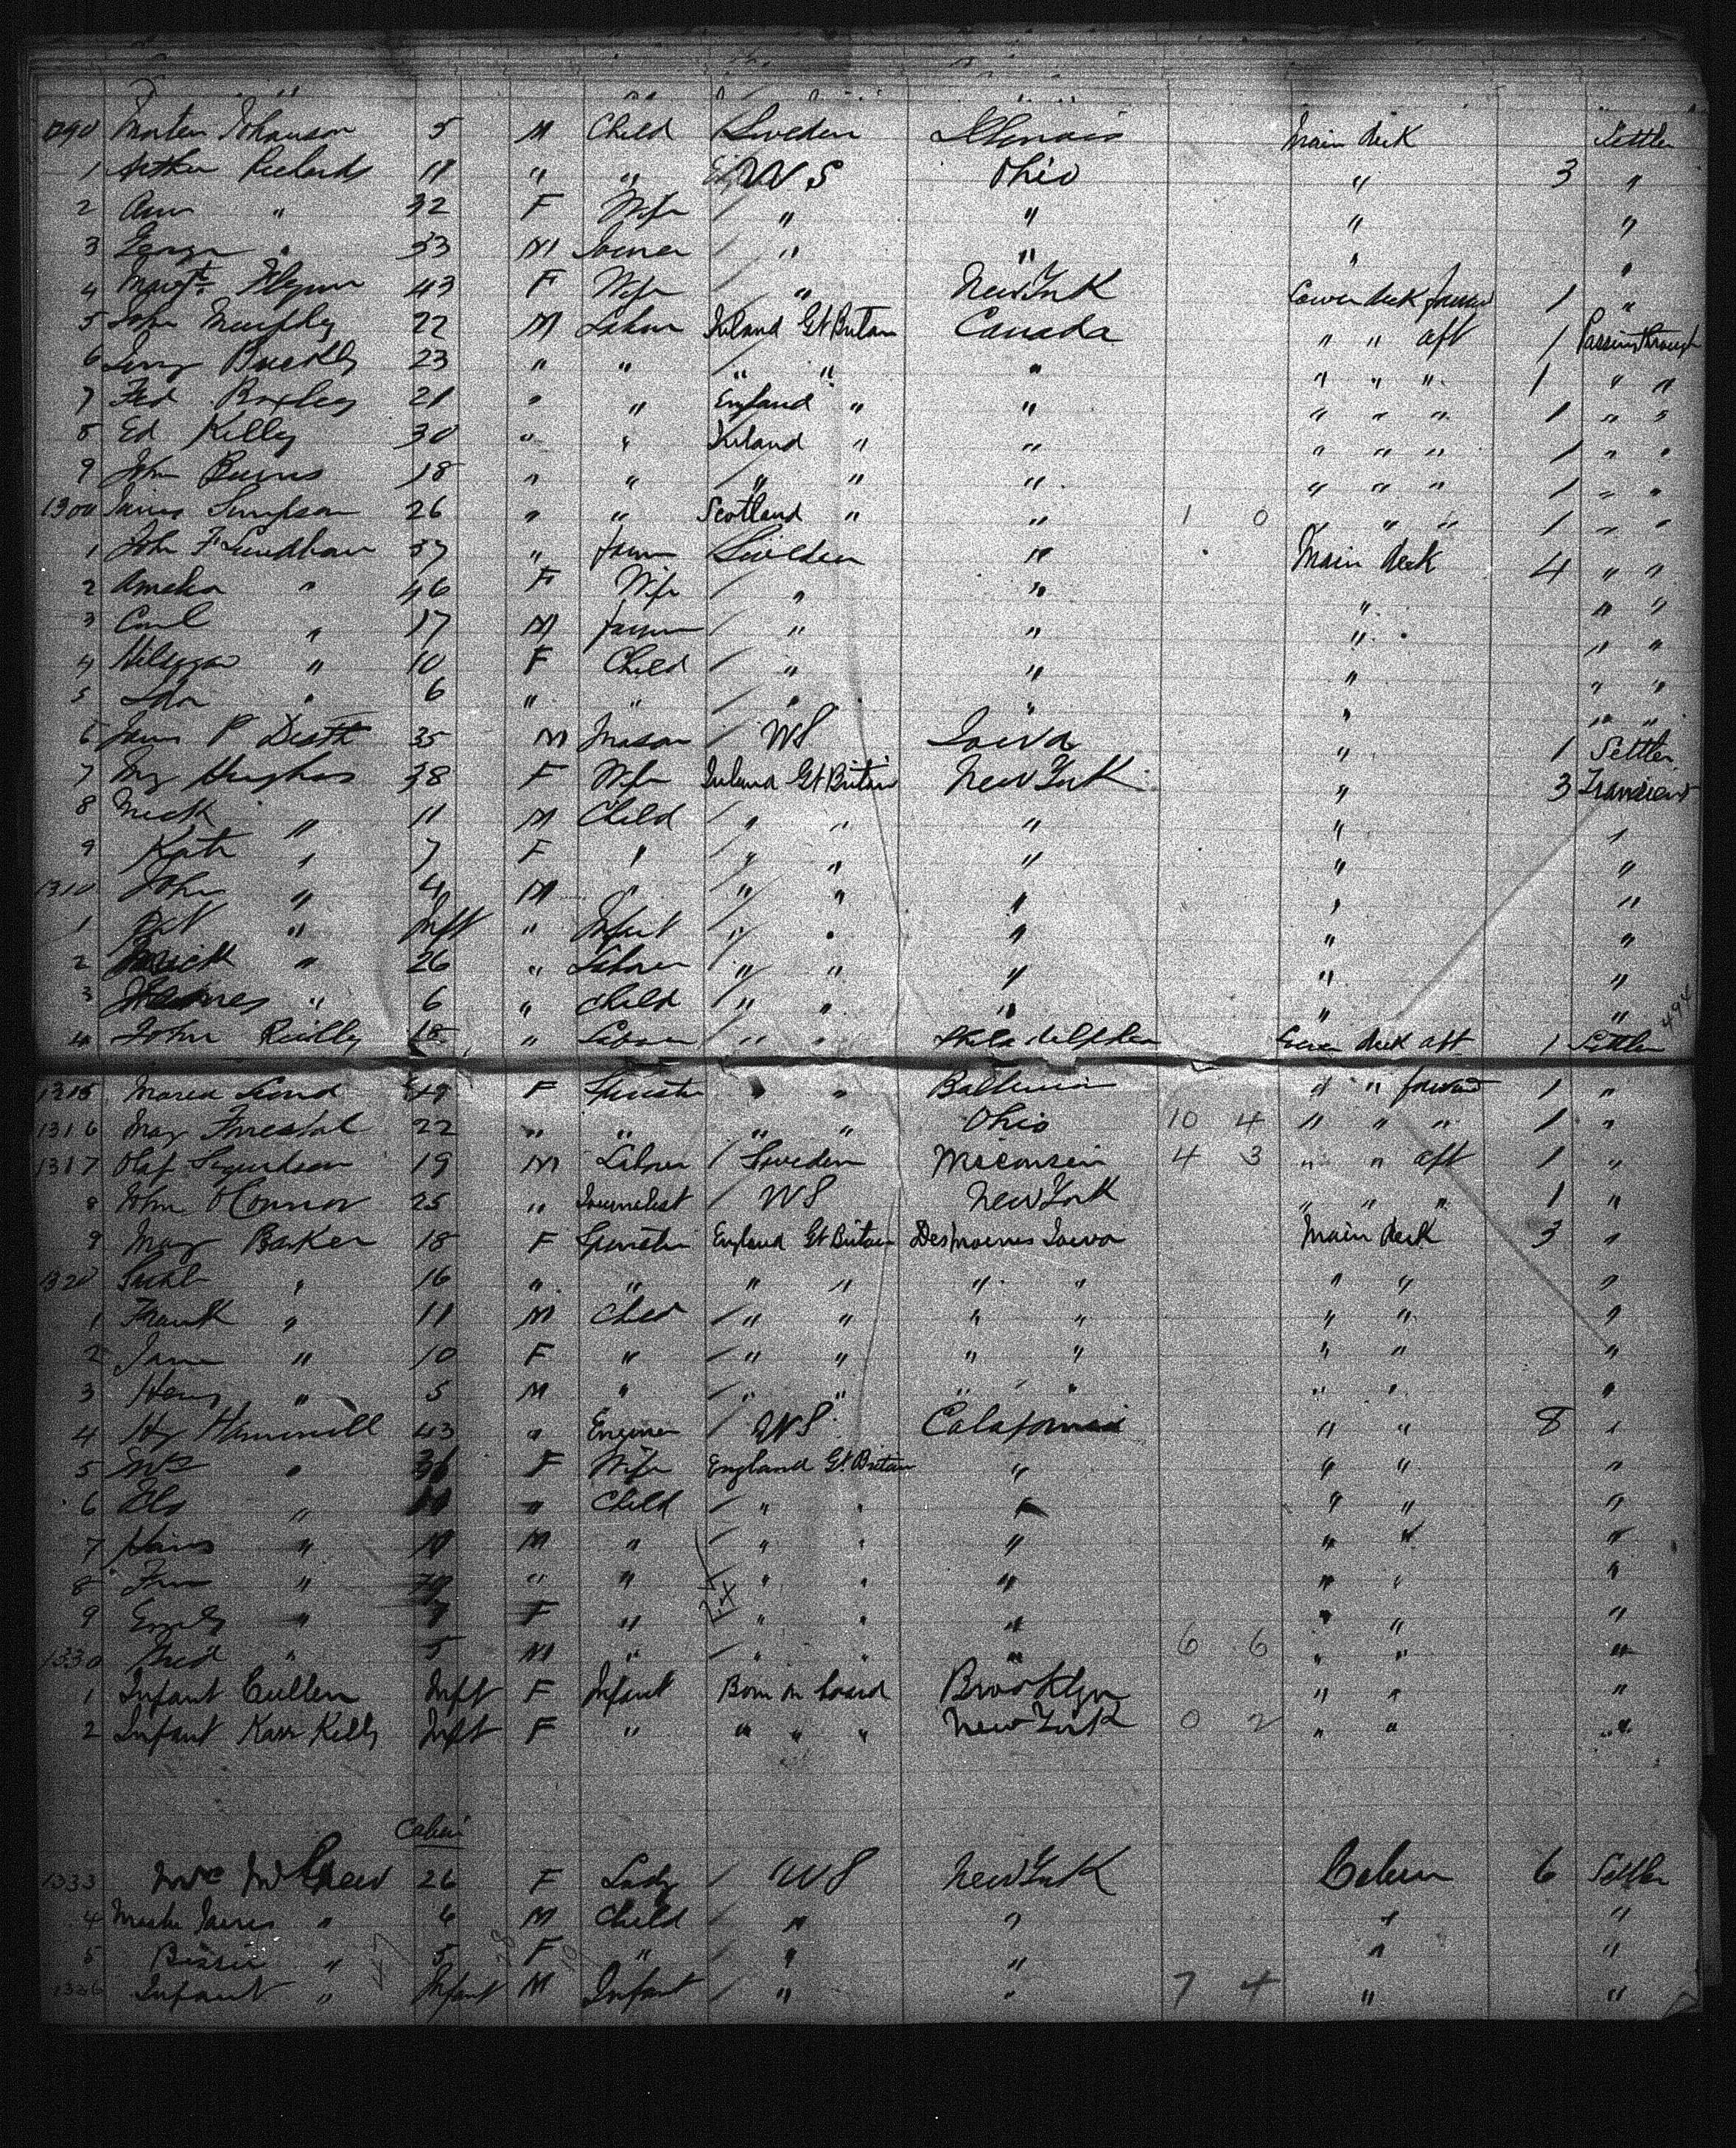 1290 Morten Johanson 5 M Child Sweden Illinois Main deck Settler
1 Arthur Richards 11 " " US Ohio " 3 "
2 Ann " 32 F Wife / " " " "
3 George " 33 M Joiner / " " " "
4 Margt. Flynn 43 F Wife / " New York Lower deck forward 1 "
5 John Murphy 22 M Labour Ireland Gt Britain Canada " " aft 1 Passing through
6 Buckley 23 " " / " " " " " " 1 " "
7 Fred 21 " " England " " " " " 1 " "
8 Ed Kelly 30 " " Ireland " " " " " 1 " "
9 John Burns 18 " " / " " " " " " 1 " "
1300 James Simpson 26 " " Scotland " " 1 0 " " " 1 " "
1 John F Lundhan 57 " Farmer Sweden " Main deck 4 " "
2 Amelia " 46 F Wife / " " " " "
3 Carl " 17 M Farmer / " " " " "
4 " 10 F Child / " " " " "
5 Ida " 6 " " / " " " " "
6 James P 35 M Mason / US Iowa " 1 Settler
7 My Hughes 38 F Wife Ireland Gt Britain New York " 3 Transient
8 Mick " 11 M Child / " " " " "
9 Kate " 7 F " / " " " " "
1310 John " 4 M " / " " " " "
1 Pat " Inft " Infant / " " " " "
2 Mick " 26 " Labourer / " " " " "
3 James " 6 " Child / " " " " "
4 John Reilly 18 " Labour / " " Philadelphia Lower deck aft 1 Settler
494
1315 Maria 49 F Spinster " " Baltimore " " forward 1 "
1316 May Forrestal 22 " " " " Ohio 10 4 " " " 1 "
1317 Olaf 19 M Labour / Sweden Wisconsin 4 3 " " aft 1 "
8 John O'Connor 25 " Journalist / US New York " " " 1 "
9 May Barker 18 F Spinster England Gt Britain Desmoines Iowa Main deck 3 "
1320 Sarah " 16 " " " " " " " " "
1 Frank " 11 M Child / " " " " " " "
2 Jane " 10 F " / " " " " " " "
3 Henry " 5 M " / " " " " " " "
4 Hy Hammill 43 " Engineer / US California " " 8 "
5 Mrs " 36 F Wife England Gt Britain " " " "
6 " " Child / " " " " " "
7 " M " / " " " " " "
8 " " " " " " " " "
9 Emily " F " " " " " " "
1330 Fred " 5 M " / " " " 6 6 " " "
1 Infant Cullen Inft F Infant Born on board Brooklyn " " "
2 Infant Kelly Inft F " " " " New York 0 2 " " "
Cabin
1333 26 F Lady / US New York Cabin 6 Settler
4 Master James " 6 M Child / " " " "
5 Bessie " 5 F " / " " " "
1336 Infant " Infant M Infant / " " 7 4 " "